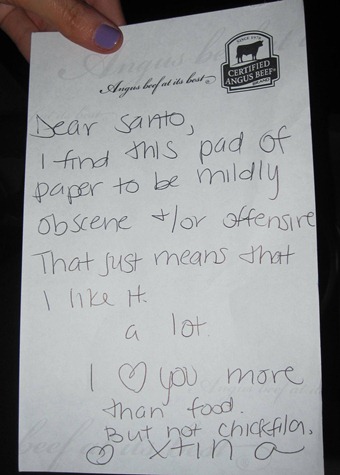 Angus beef at its best
SINCE 1978
CERTIFIED
ANGUS BEEF
BRAND
Dear Santo,
I find this pad of
paper to be mildly
obscene +/or offensive
That just means that
I like it.
a lot.
I ♡ you more
than food.
But not chickfila.
♡ xtina